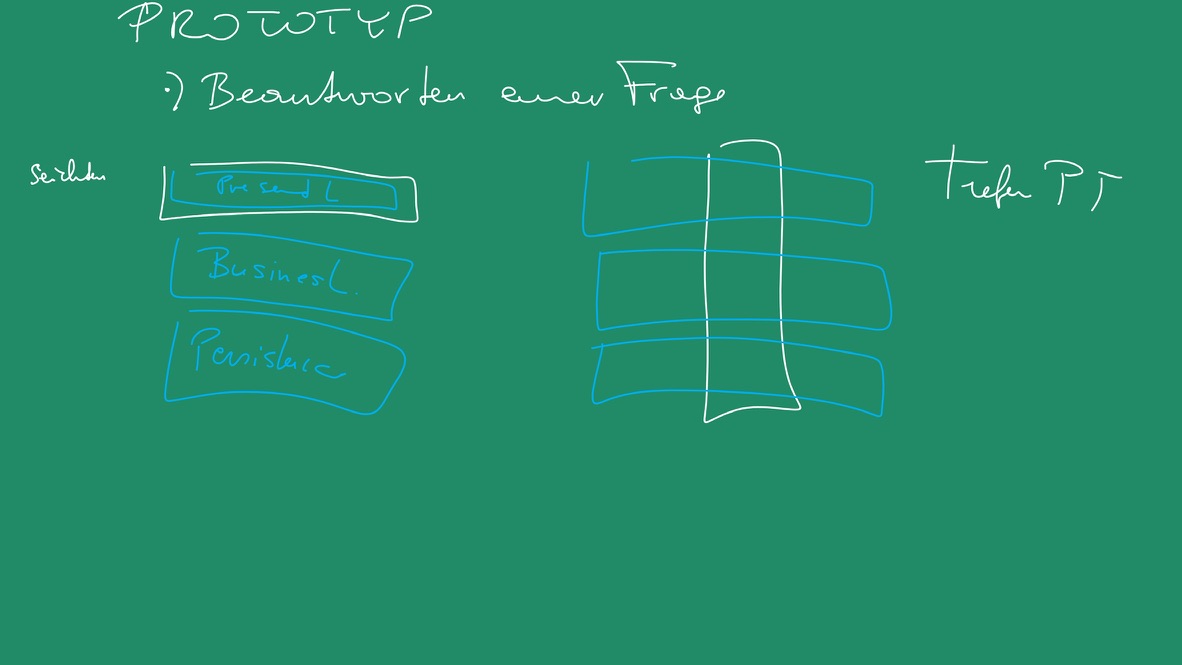 PROTOTYP
:) Beantworten einer Frage
Seichten
Present L
Busines L.
Persistence
Tiefen PT